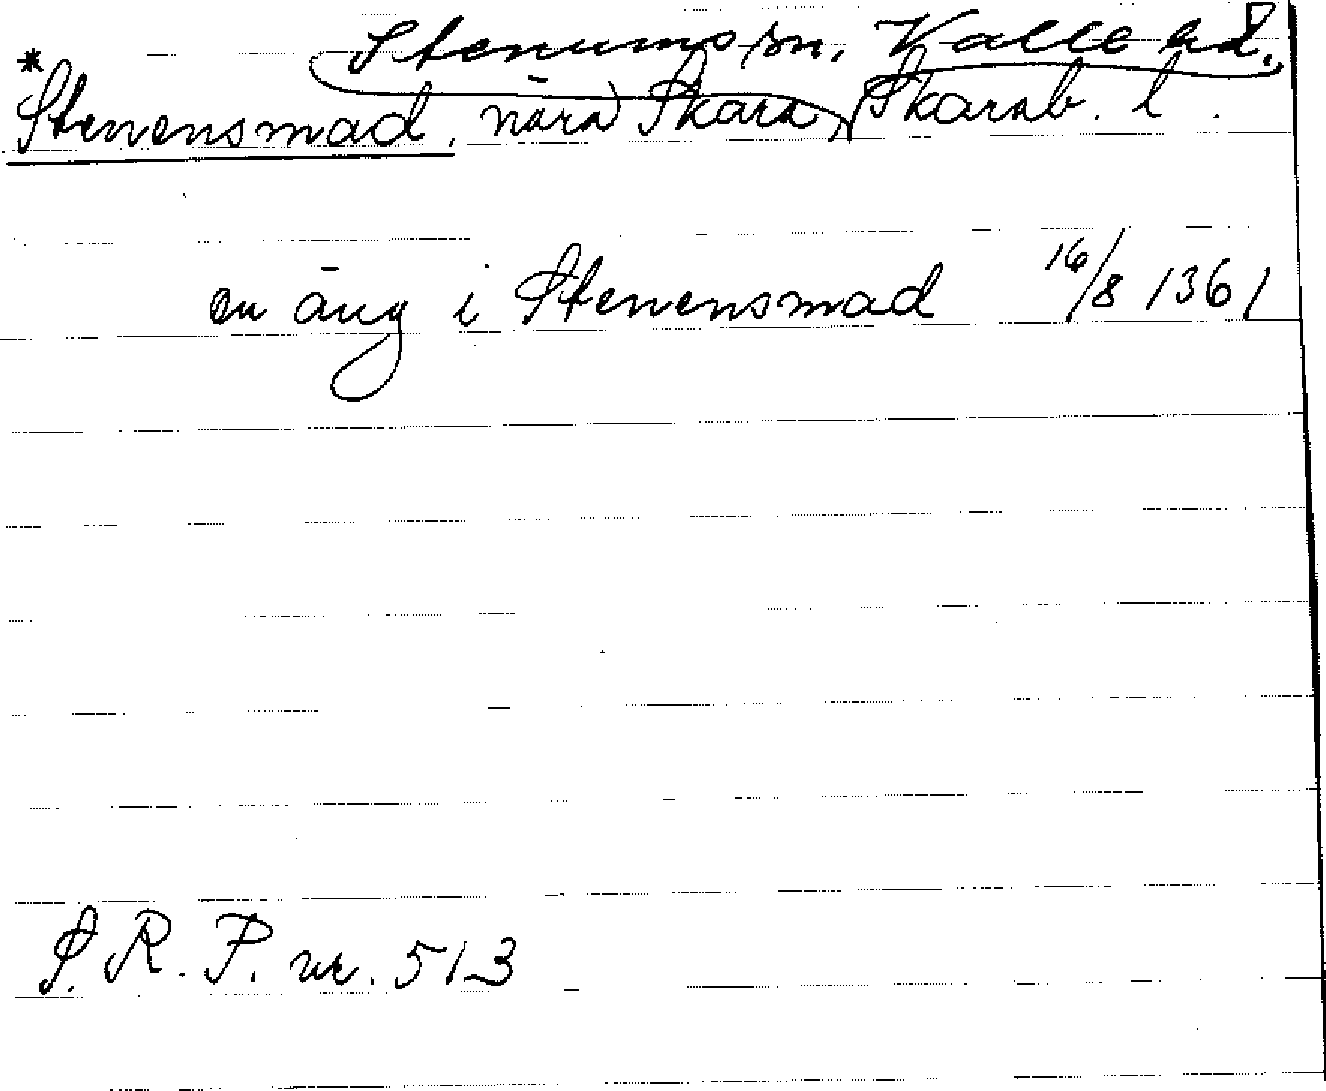 Stenums sn. Valle hd.
*Stenensmad, nära Skara, Skarab. l.
en äng i Stenensmad 16/8 1361
S. R. P. nr. 513